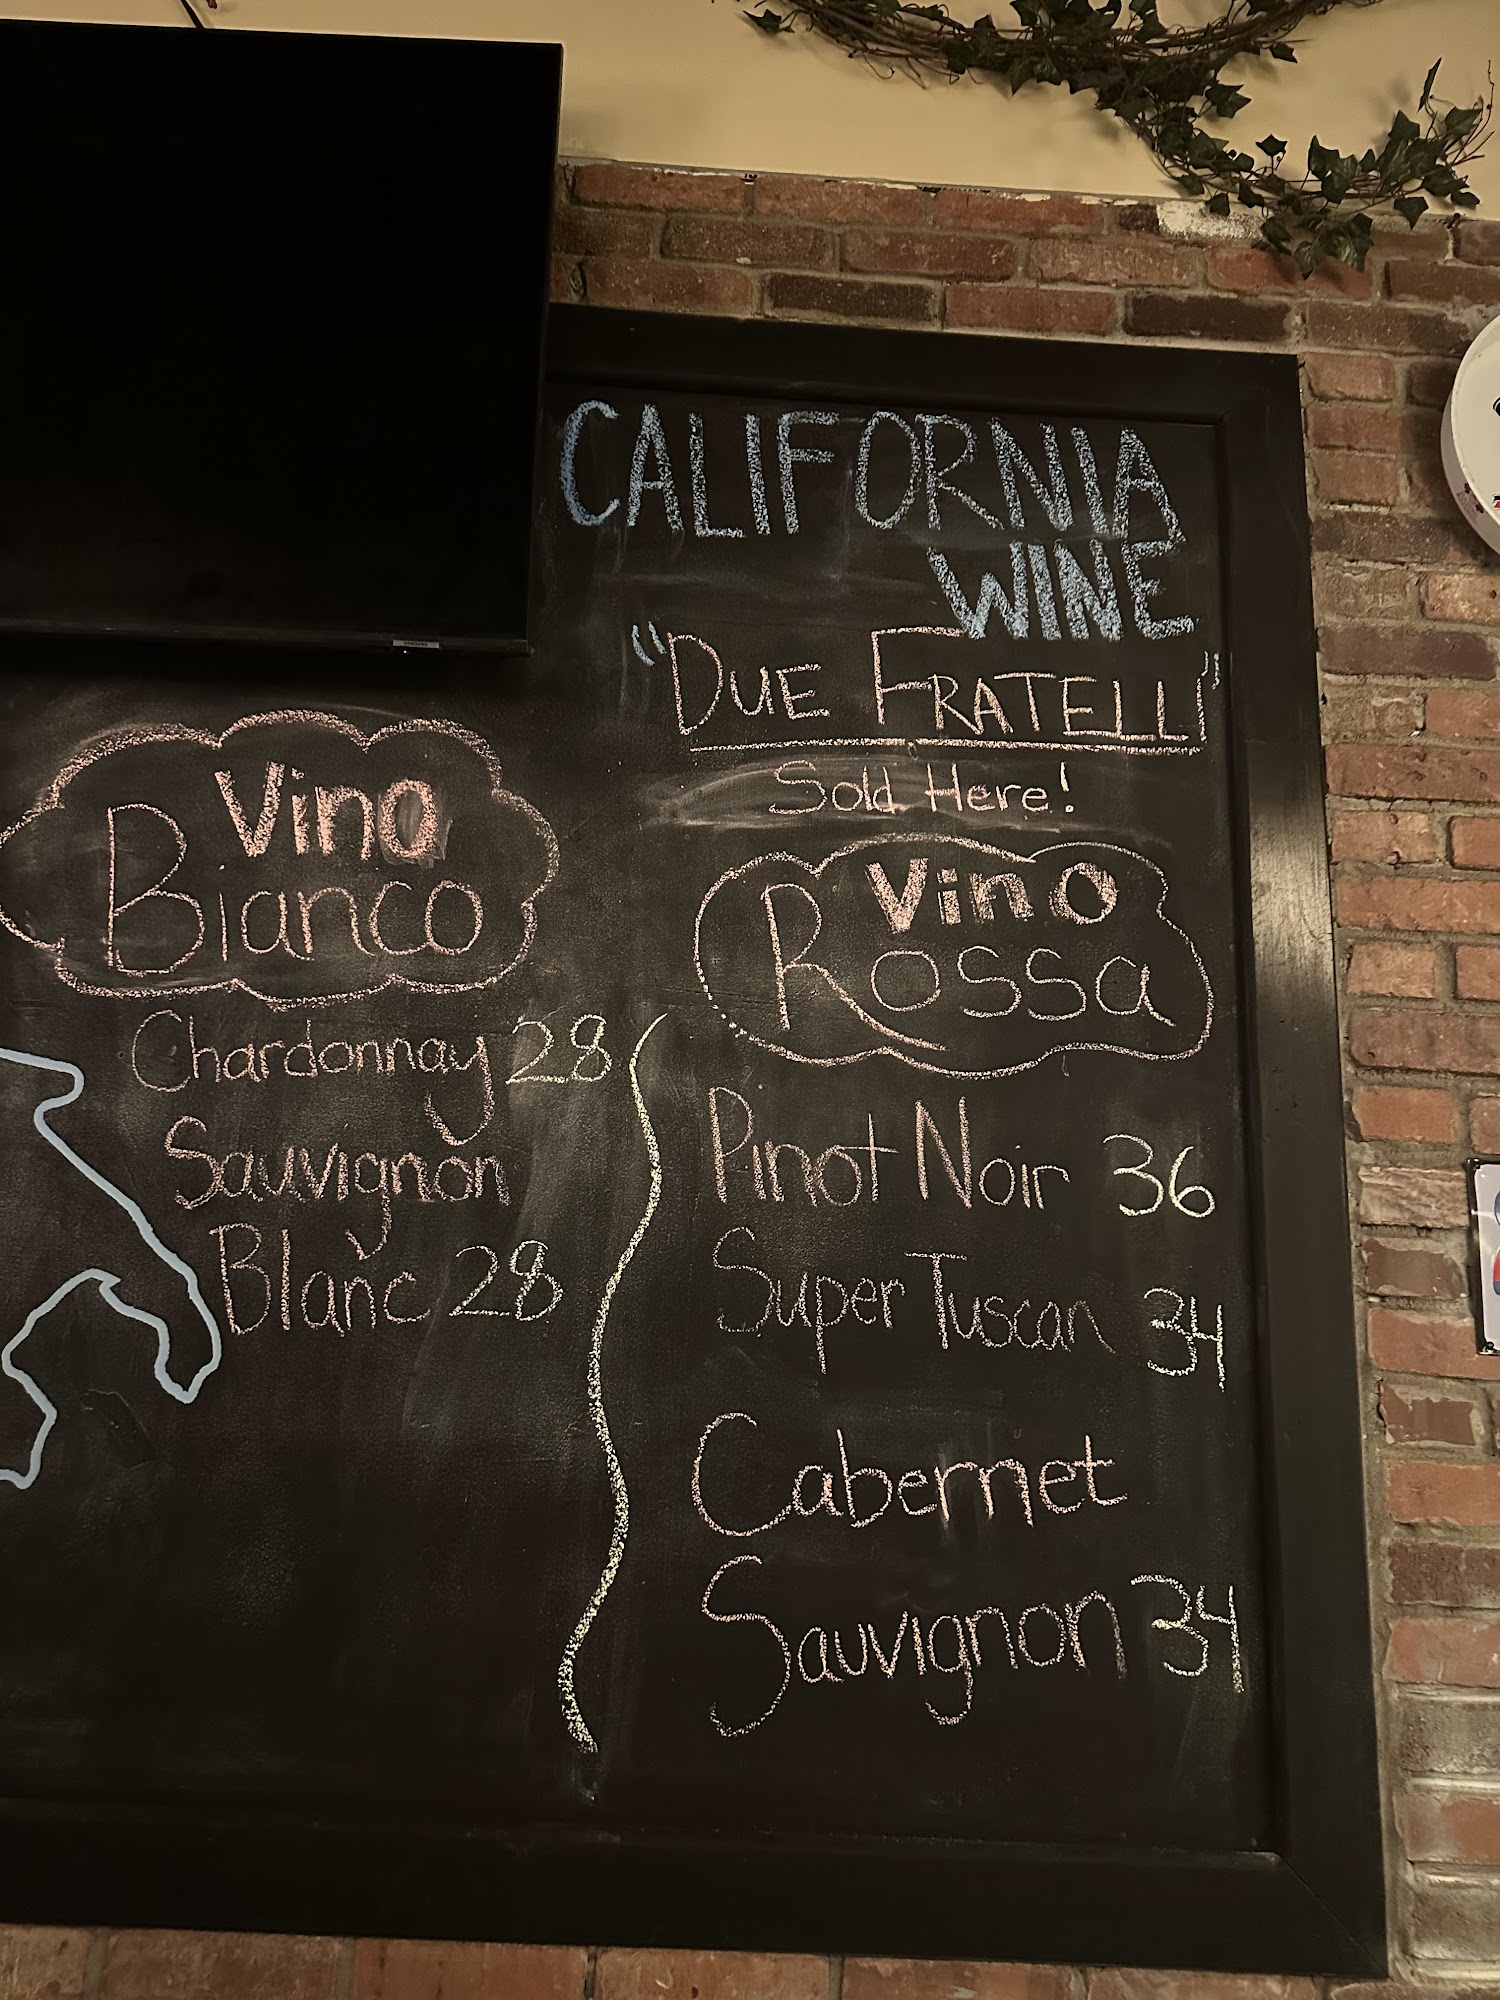 CALIFORNIA
WINE
"DUE FRATELLI"
Sold Here!
Vino
Bianco
Chardonnay 28
Sauvignon
Blanc 28
Vino
Rossa
Pinot Noir 36
Super Tuscan 34
Cabernet
Sauvignon 34